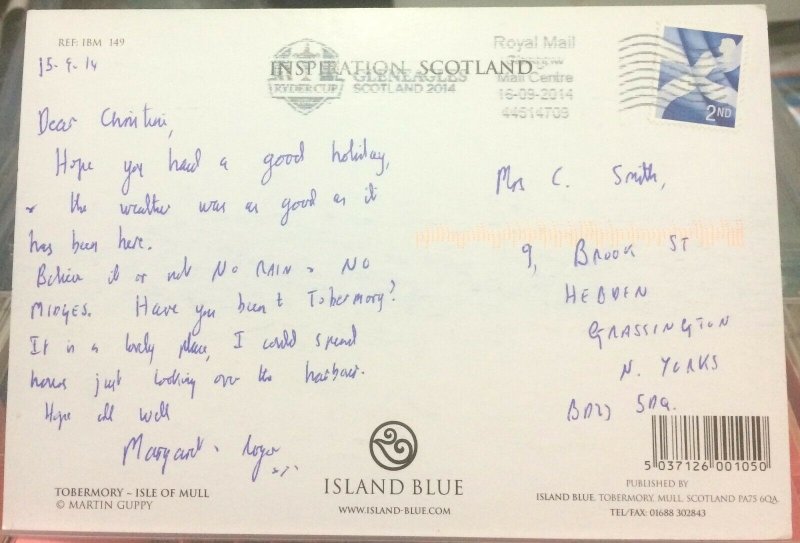 REF: IBM 149
15-9-14
INSPIRATION SCOTLAND
RYDER CUP
GLENEAGLES
SCOTLAND 2014
Royal Mail
Mail Centre
16-09-2014
44514709
2ND
Dear Christine,
Hope you had a good holiday,
& the weather was as good as it
has been here.
Believe it or not NO RAIN & NO
MIDGES. Have you been t Tobermory?
It is a lovely place, I could spend
hours just looking over the harbour.
Hope all well
Margaret & Roger
Mrs C. Smith,
9, BROOK ST
HEBDEN
GRASSINGTON
N. YORKS
BD23 5DQ.
TOBERMORY ~ ISLE OF MULL
© MARTIN GUPPY
ISLAND BLUE
WWW.ISLAND-BLUE.COM
5 037126 001050
PUBLISHED BY
ISLAND BLUE, TOBERMORY, MULL, SCOTLAND PA75 6QA.
TEL/FAX: 01688 302843